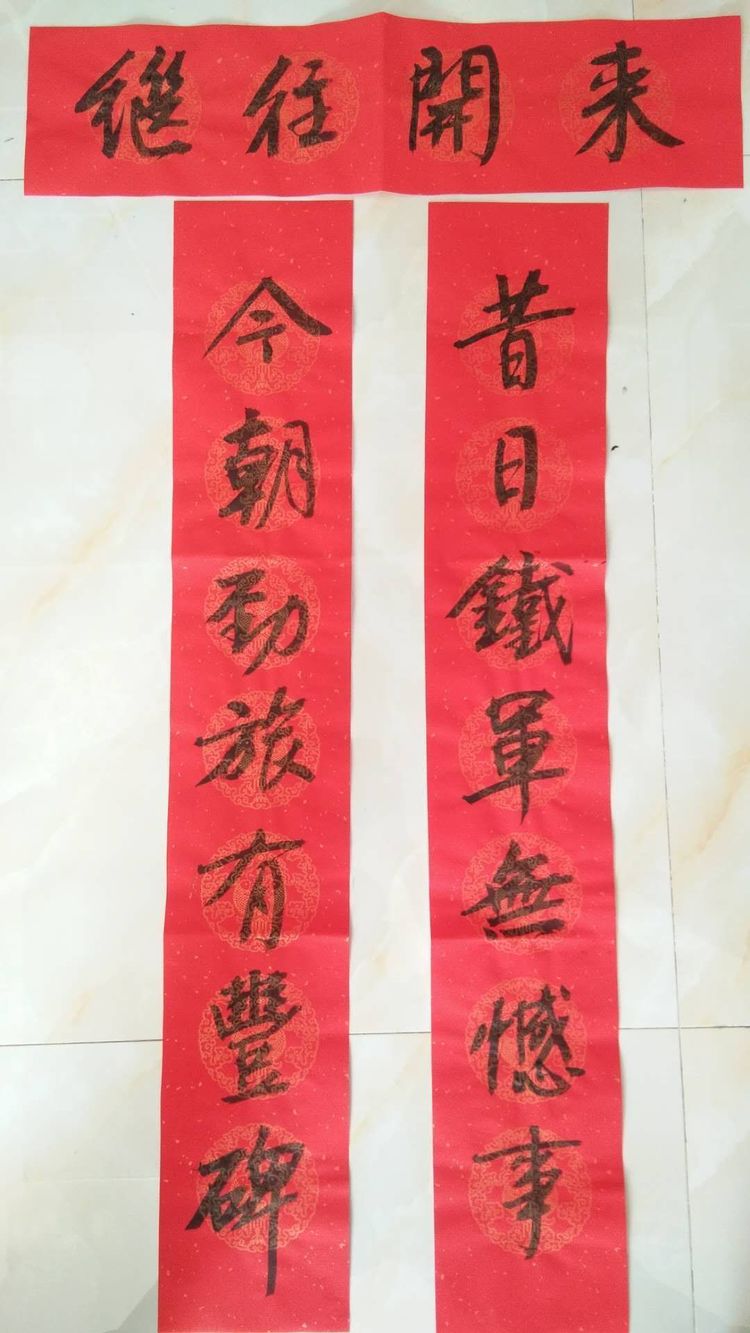 继往開来
昔日鐵軍無憾事
今朝劲旅有豐碑